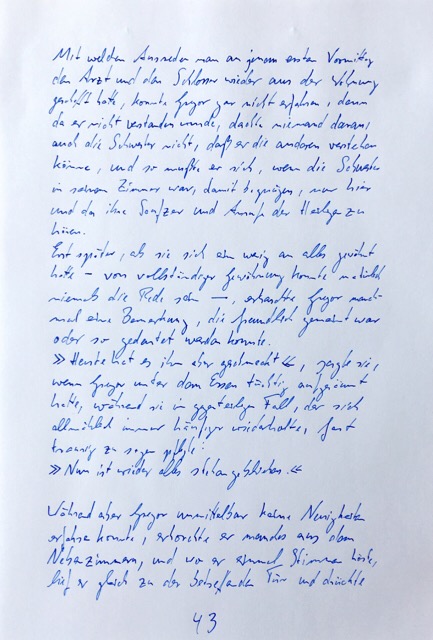 Mit welchen Ausreden man an jenem ersten Vormittag
den Arzt und den Schlosser wieder aus der Wohnung
geschafft hatte, konnte Gregor gar nicht erfahren, denn
da er nicht verstanden wurde, dachte niemand daran,
auch die Schwester nicht, daß er die anderen verstehen
könne, und so mußte er sich, wenn die Schwester
in seinem Zimmer war, damit begnügen, nur hier
und da ihre Seufzer und Anrufe der Heiligen zu
hören.
Erst später, als sie sich ein wenig an alles gewöhnt
hatte – von vollständiger Gewöhnung konnte natürlich
niemals die Rede sein –, erhaschte Gregor manch-
mal eine Bemerkung, die freundlich gemeint war
oder so gedeutet werden konnte.
»Heute hat es ihm aber geschmeckt«, sagte sie,
wenn Gregor unter dem Essen tüchtig aufgeräumt
hatte, während sie im gegenteiligen Fall, der sich
allmählich immer häufiger wiederholte, fast
traurig zu sagen pflegte:
»Nun ist wieder alles stehengeblieben.«
Während aber Gregor unmittelbar keine Neuigkeiten
erfahren konnte, erhorchte er manches aus den
Nebenzimmern, und wo er einmal Stimmen hörte,
lief er gleich zu der betreffenden Tür und drückte
43